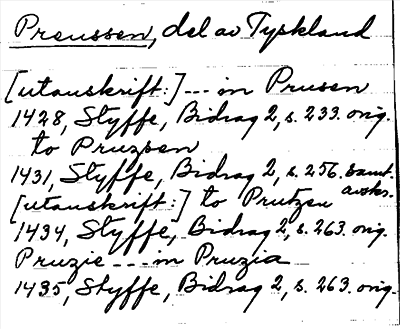 Preussen, del av Tyskland
[utanskrift:] --- in Prusen
1428, Styffe, Bidrag 2, s. 233. orig.
to Pruzsen
1431, Styffe, Bidrag 2, s. 256. samt. avskr.
[utanskrift:] to Prutzen
1434, Styffe, Bidrag 2, s. 263. orig.
Pruzie --- in Pruzia
1435, Styffe, Bidrag 2, s. 263. orig.